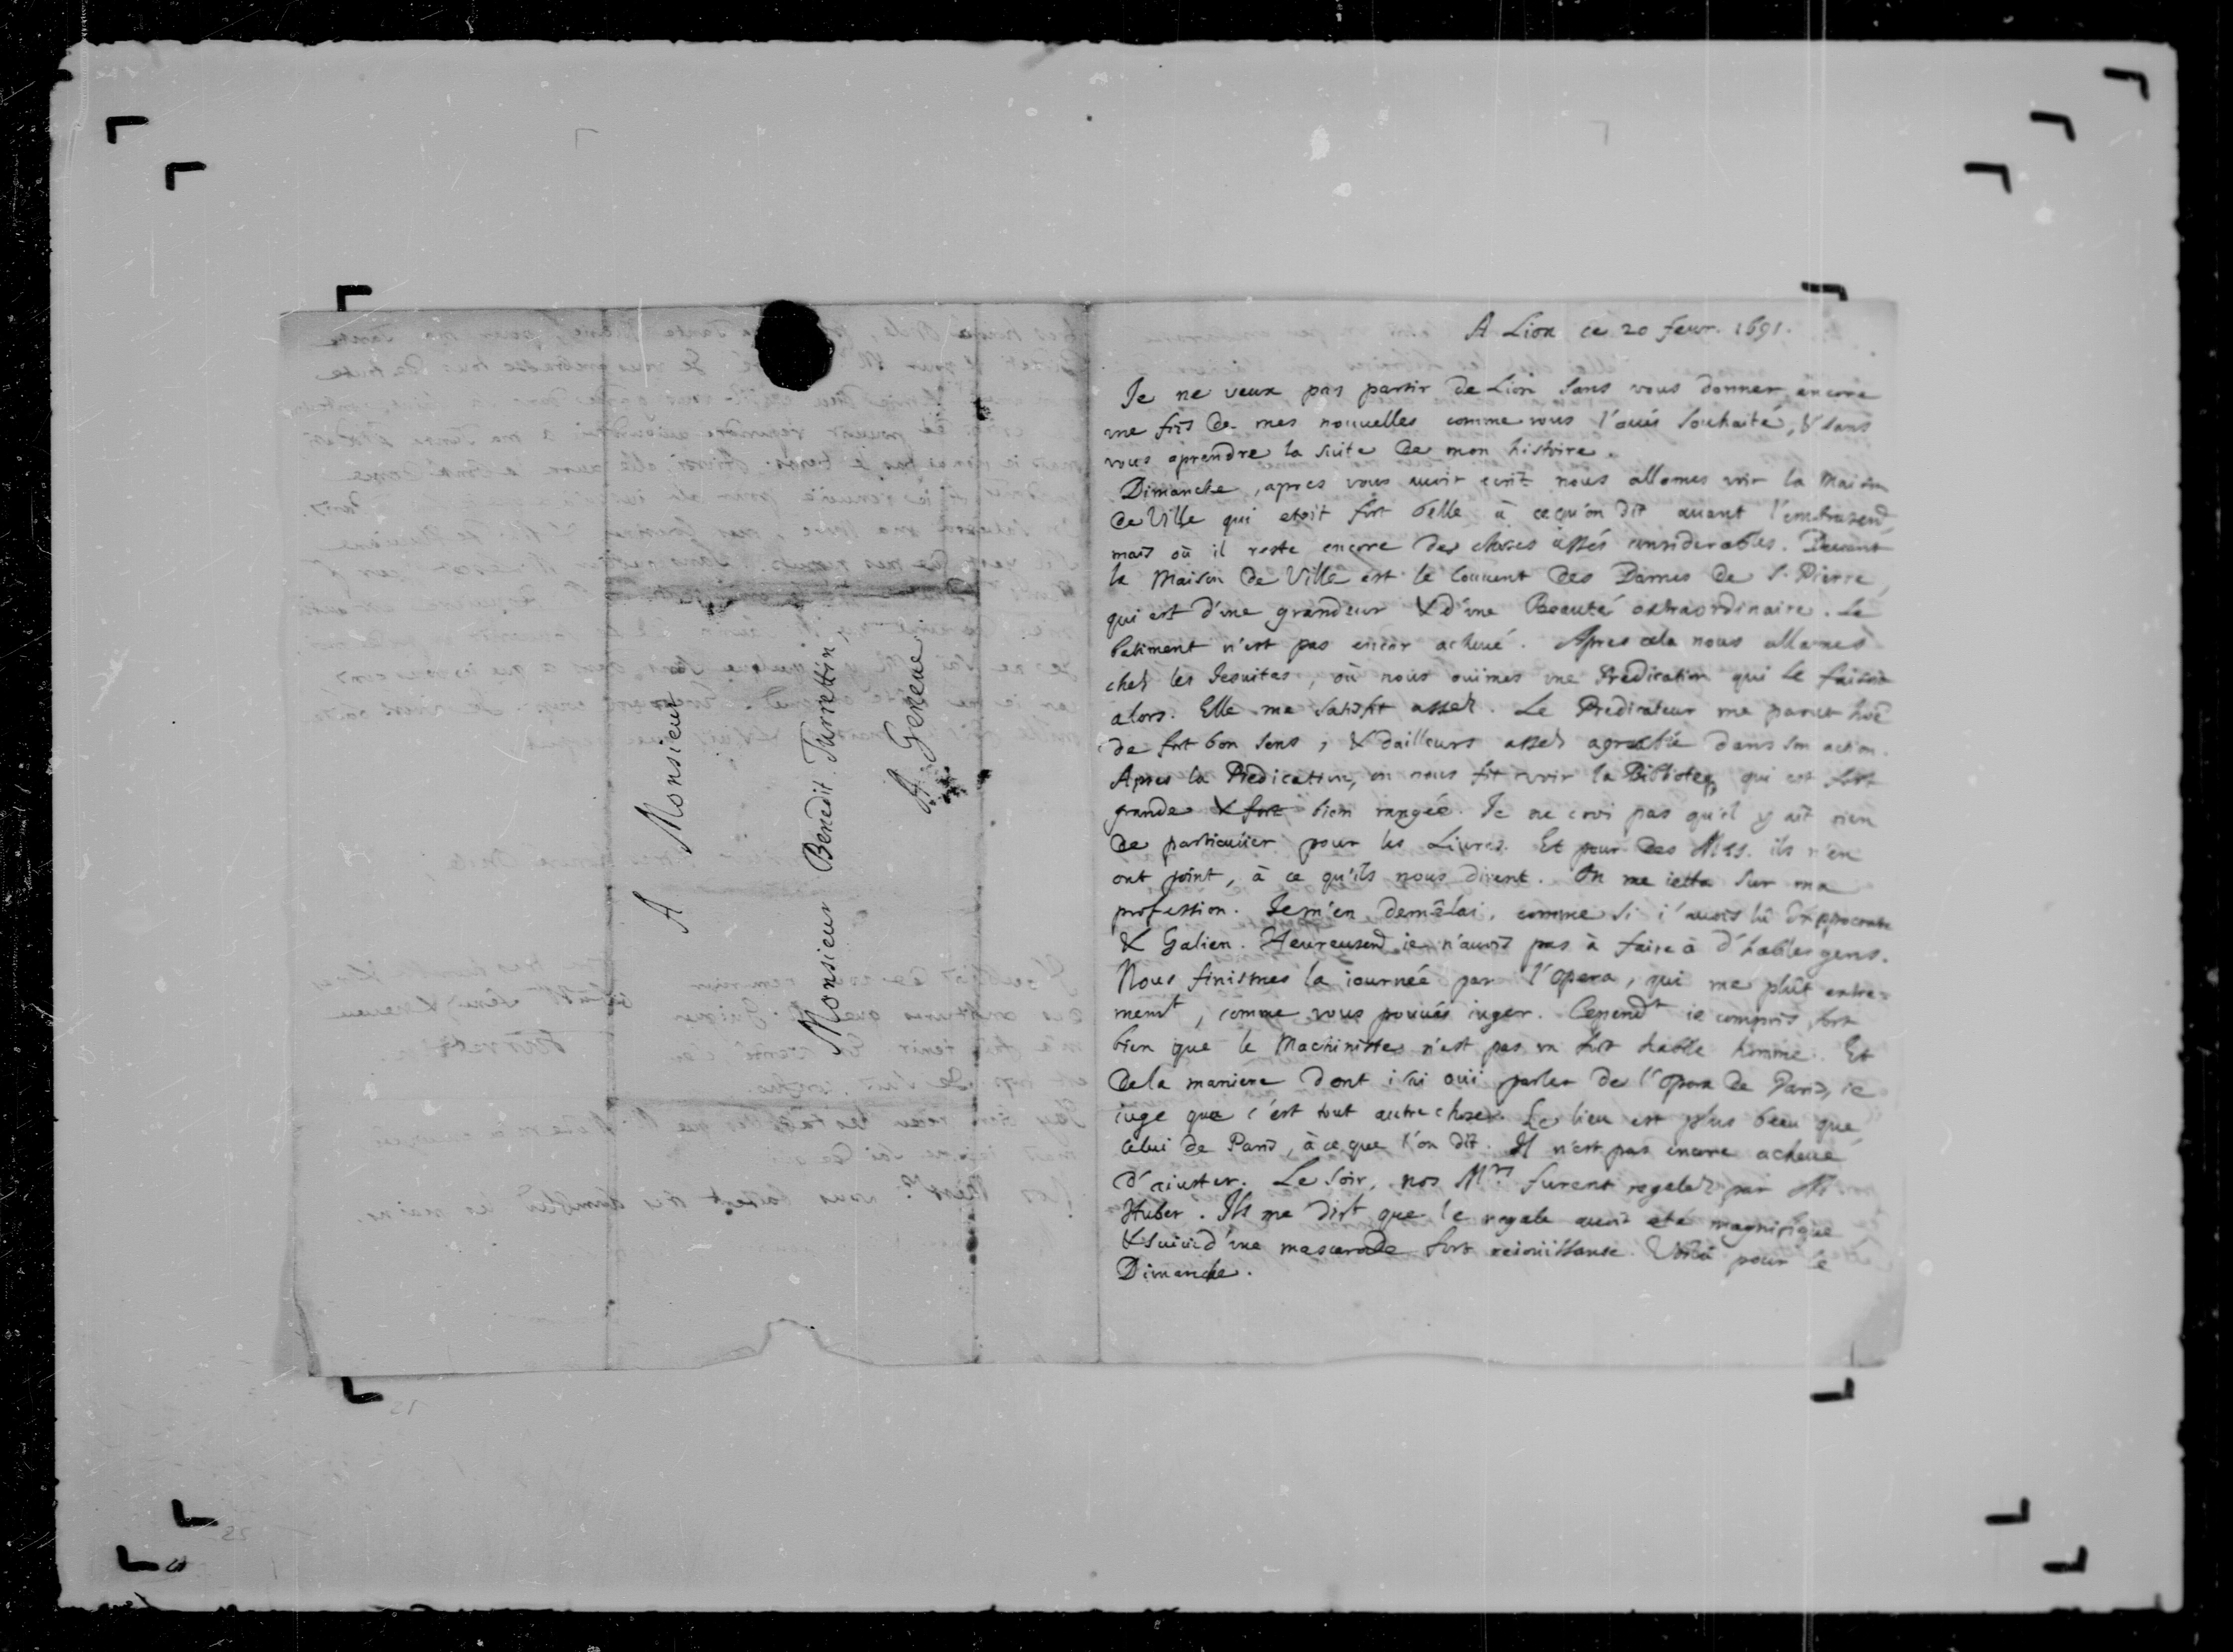 A Monsieur
Monsieur Benedit Turrettin,
A Geneue.
A Lion ce 20 feur. 1691.
Je ne veux pas partir de Lion sans vous donner encore
vne fois de mes nouuelles comme vous l'aués souhaité, & sans
vous aprendre la suite de mon histoire.
Dimanche, apres vous auoir ecrit nous allames voir la Maison
de Ville qui etoit fort belle à ce qu'on dit auant l'embrasemt,
mais où il reste encore des choses assés considerables. Deuant
la Maison de Ville est le Couuent des Dames de S. Pierre,
qui est d'vne grandeur & d'vne Beauté extraordinaire. Le
batiment n'est pas encor acheué. Apres cela nous allames
chez les Iesuites, où nous ouimes vne Predication qui se faisoit
alors. Elle me satisfit assez. Le Predicateur me parut hoe
de fort bon sens, & dailleurs assez agreable dans son action.
Apres la Predication, on nous fit ouvrir la Biblioteq, qui est fort
grande & fort bien rangée. Je ne croi pas qu'il y ait rien
de particulier pour les Liures. Et pour des Mss. ils n'en
ont point, à ce qu'ils nous dirent. On me ietta sur ma
profession. Je m'en demêlai, comme si i'auois lû Hippocrate
& Galien. Heureusemt ie n'auois pas à faire à d'habiles gens.
Nous finismes la iournée par l'opera, qui me plût extre-
memt, comme vous pouués iuger. Cependt ie compris fort
bien que le Machiniste n'est pas vn fort habile homme. Et
de la maniere dont i'ai oui parler de l'opera de Paris, ie
iuge que c'est tout autre chose. Le lieu est plus beau que
celui de Paris, à ce que l'on dit. Il n'est pas encore acheué
d'aiuster. Le soir, nos Mrs furent regalez par Mr
Huber. Ils me dirt que le regale auoit eté magnifique
& suiui d'vne mascarade fort reiouissante. Voilà pour le
Dimanche.